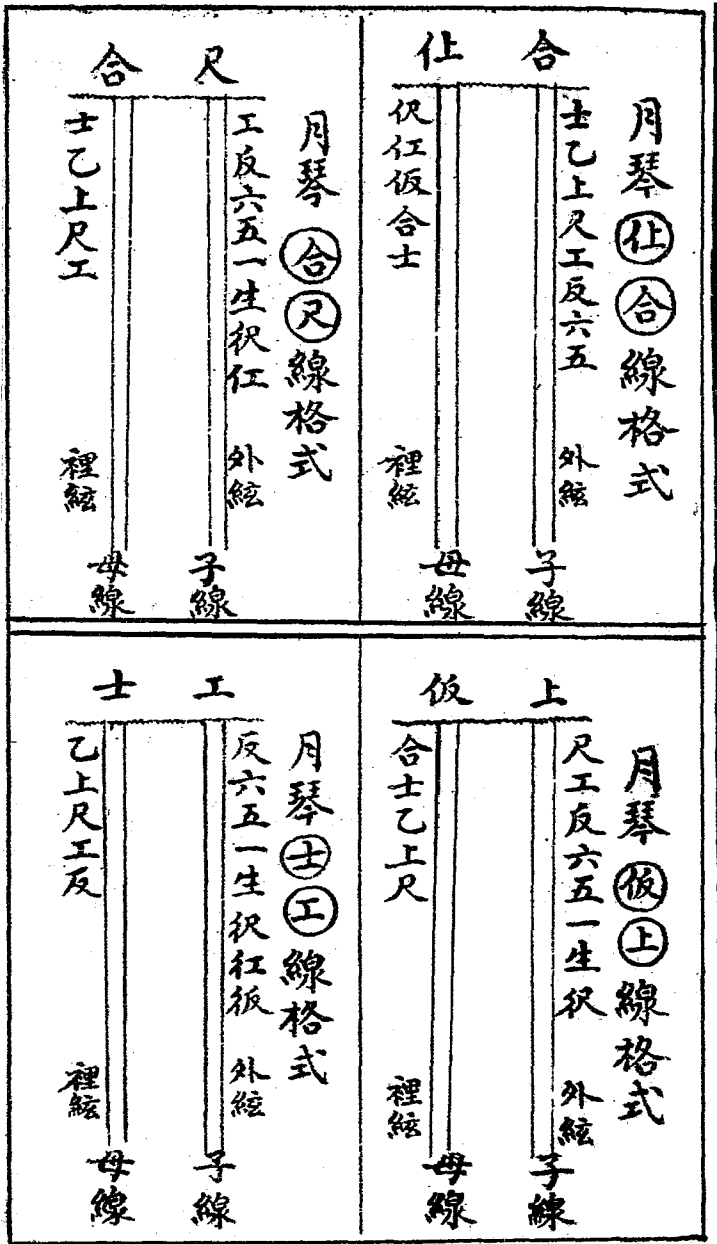 月琴仩合線格式
合
士乙上尺工反六五
外絃
子線
仩
伬仜仮合士
裡絃
母線
月琴合尺線格式
尺
工反六五一生伬仜
外絃
子線
合
士乙上尺工
裡絃
母線
月琴仮上線格式
上
尺工反六五一生伬
外絃
子線
仮
合士乙上尺
裡絃
母線
月琴士工線格式
工
反六五一生伬仜仮
外絃
子線
士
乙上尺工反
裡絃
母線